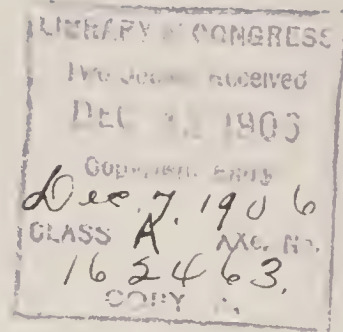 LIBRARY of CONGRESS
Two Copies Received
DEC 1906
Copyright Entry
Dec. 7, 1906
CLASS A XXc. No.
162463.
COPY